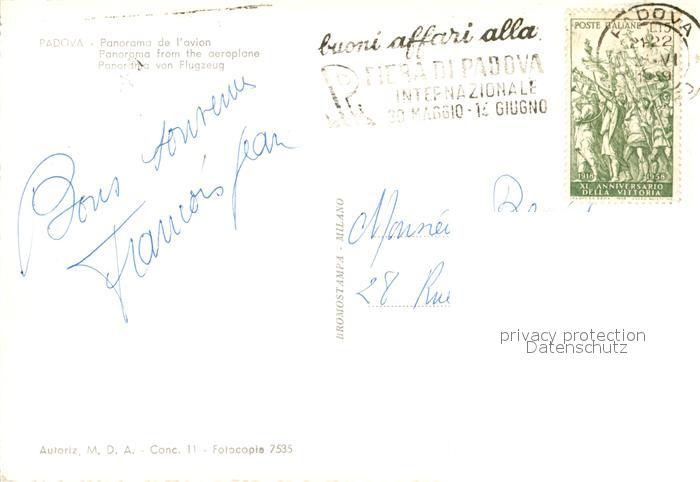 PADOVA - Panorama de l'avion
Panorama from the aeroplane
Panorama von Flugzeug
Bons souvenirs
François Jean
Autoriz. M. D. A. - Conc. 11 - Fotocopia 7535
BROMOSTAMPA - MILANO
buoni affari alla
FIERA DI PADOVA
INTERNAZIONALE
30 MAGGIO - 14 GIUGNO
POSTE ITALIANE L.15
1918 1958
XL ANNIVERSARIO
DELLA VITTORIA
PADOVA
28 Rue
privacy protection
Datenschutz